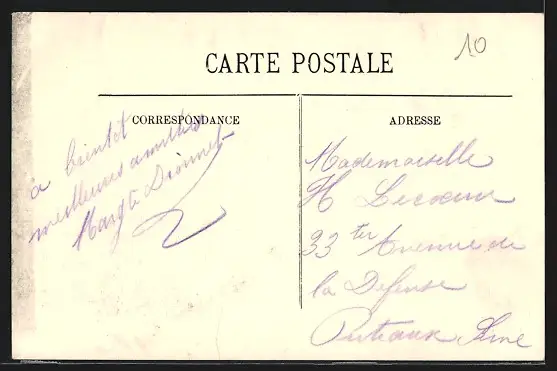 10
CARTE POSTALE
CORRESPONDANCE
ADRESSE
à bientôt
meilleures amitiés
Margte Dionnet
Mademoiselle
H Lecoeur
33 ter Avenue de
la Defense
Puteaux Seine